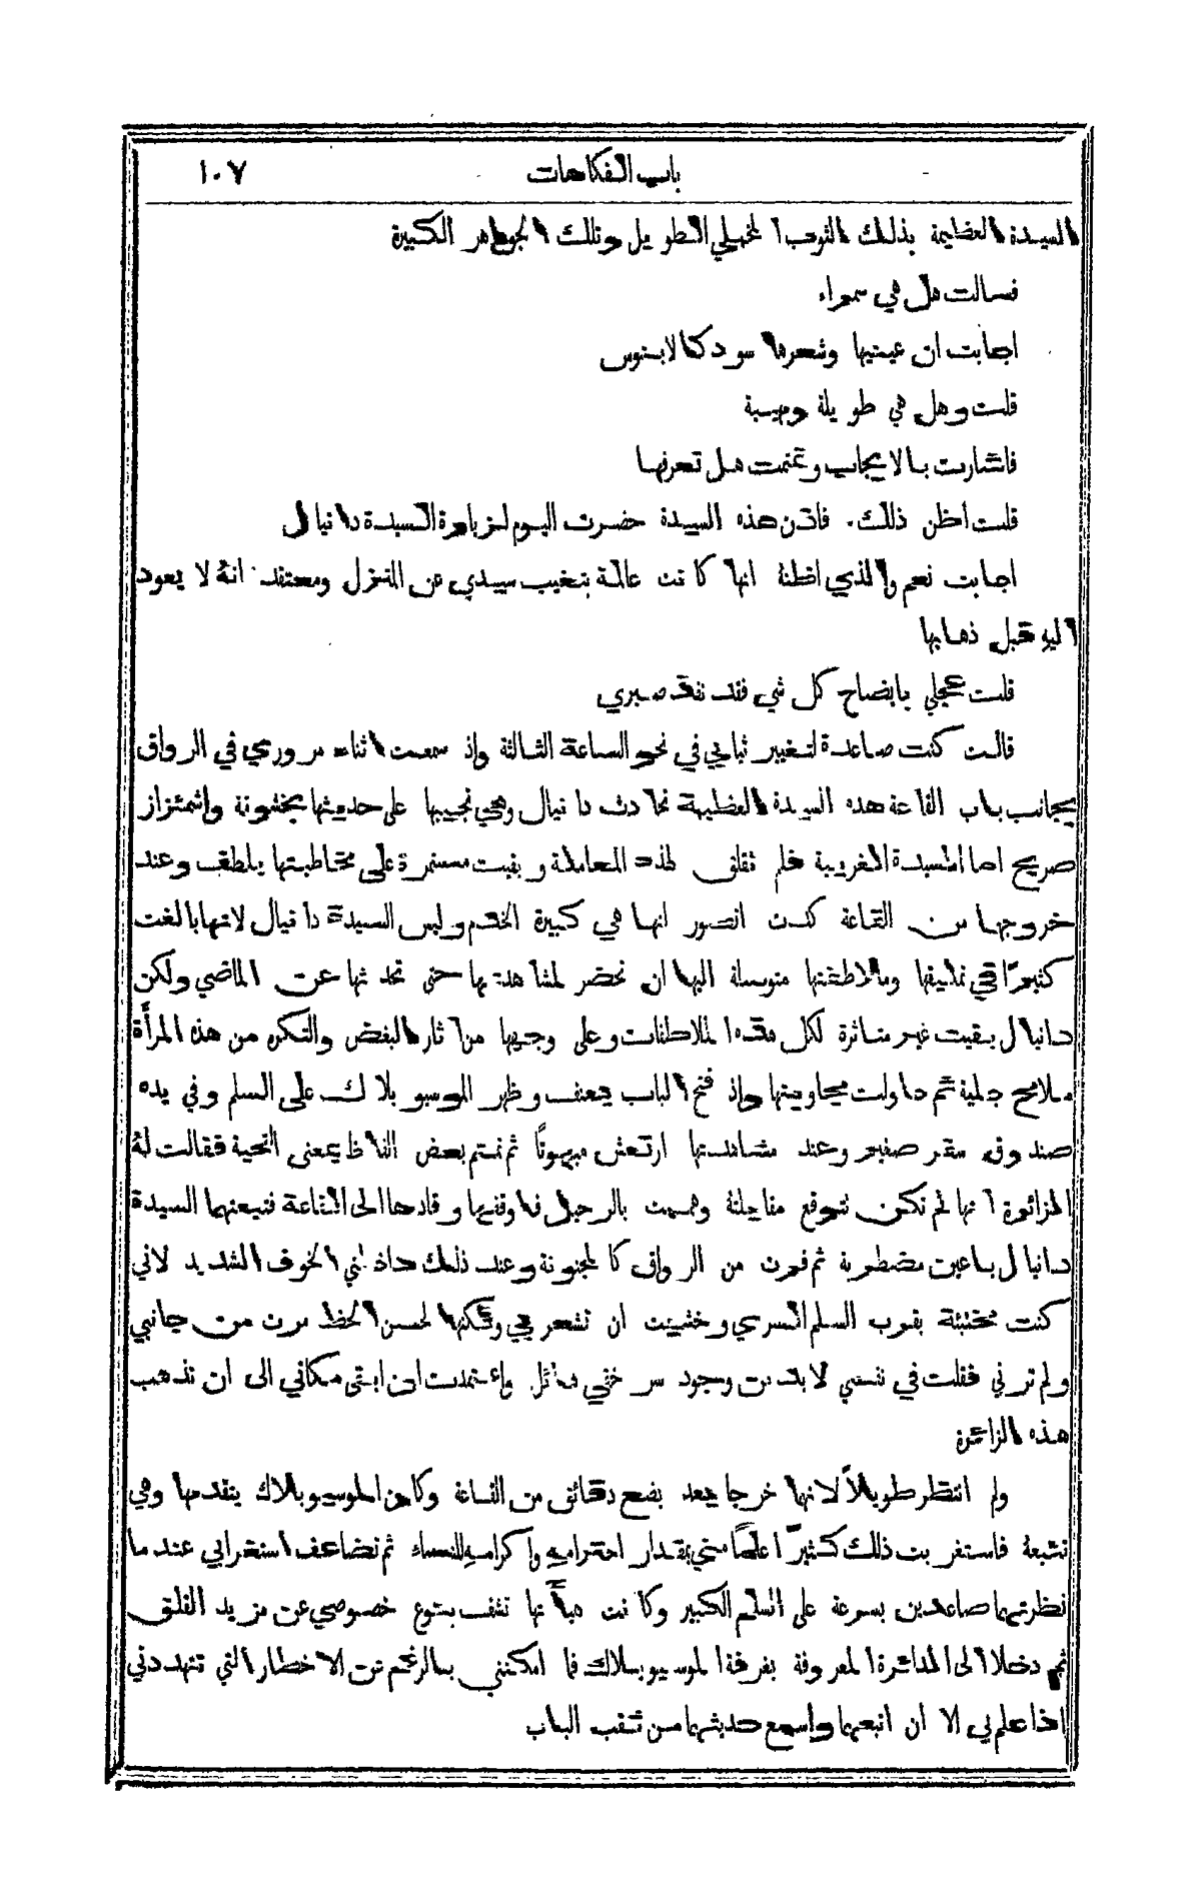 باب الفكاهات ١٠٧
السيدة العظيمة بذلك الثوب المخملي الطويل وتلك الجواهر الكبيرة
فسالت هل هي سمراء
اجابت ان عينيها وشعرها سود كالابنوس
قلت وهل هي طويلة ومهيبة
فاشارت بالايجاب وتمتمت هل تعرفها
قلت اظن ذلك. فاذن هذه السيدة حضرت اليوم لزيارة السيدة دانيال
اجابت نعم والذي اظنة انها كانت عالمة بتغيب سيدي عن المنزل ومعتقد انة لا يعود
اليو قبل ذهابها
قلت عجلي بايضاح كل شي فقد نفد صبري
قالت كنت صاعدة لتغيير ثيابي في نحو الساعة الثالثة واذ سمعت اثناء مروري في الرواق
بجانب باب القاعة هذه السيدة العظيمة تحادث دانيال وهي تجيبها على حديثها بخشونة واشمئزاز
صريح اما السيدة الغريبة فلم تقلق لهذه المعاملة وبقيت مستمرة على مخاطبتها بلطف وعند
خروجها من القاعة كدت اتصور انها هي كبيرة الخدم وليس السيدة دانيال لانها بالغت
كثيرًا في تمليقها وملاطفتها متوسلة اليها ان تحضر لمشاهدتها حتى تحدثها عن الماضي ولكن
دانيال بقيت غير متأثرة لكل هذه الملاطفات وعلى وجهها من اثار البغض والتكره من هذه المرأة
ملامح جلية ثم حاولت مجاوبتها واذ فتح الباب بعنف وظهر الموسيو بلاك على السلم وفي يده
صندوق سفر صغير وعند مشاهدتها ارتعش مبهوتًا ثم تمتم بعض الفاظ بمعنى التحية فقالت لة
الزائرة انها لم تكن تتوقع مقابلتة وهممت بالرحيل فاوقفها وقادها الى القاعة فتبعتهما السيدة
دانيال باعين مضطربة ثم فرت من الرواق كالمجنونة وعند ذلك داخلني الخوف الشديد لاني
كنت مختبئة بقرب السلم السري وخشيت ان تشعر بي ولكنها لحسن الحظ مرت من جانبي
ولم ترني فقلت في نفسي لا بد من وجود سر خفي هائل واعتمدت ان ابقى مكاني الى ان تذهب
هذه الزائرة
ولم انتظر طويلاً لانهما خرجا بعد بضع دقائق من القاعة وكان الموسيو بلاك يتقدمها وهي
تتبعة فاستغربت ذلك كثيرًا علمًا مني بمقدار احترامه واكرامه للنساء ثم تضاعف استغرابي عند ما
نظرتهما صاعدين بسرعة على السلم الكبير وكانت هيأتها تشف بنوع خصوصي عن مزيد القلق
ثم دخلا الى الدائرة المعروفة بغرفة الموسيو بلاك فما امكنني بالرغم من الاخطار التي تتهددني
اذا علم بي الا ان اتبعهما واسمع حديثهما من ثقب الباب